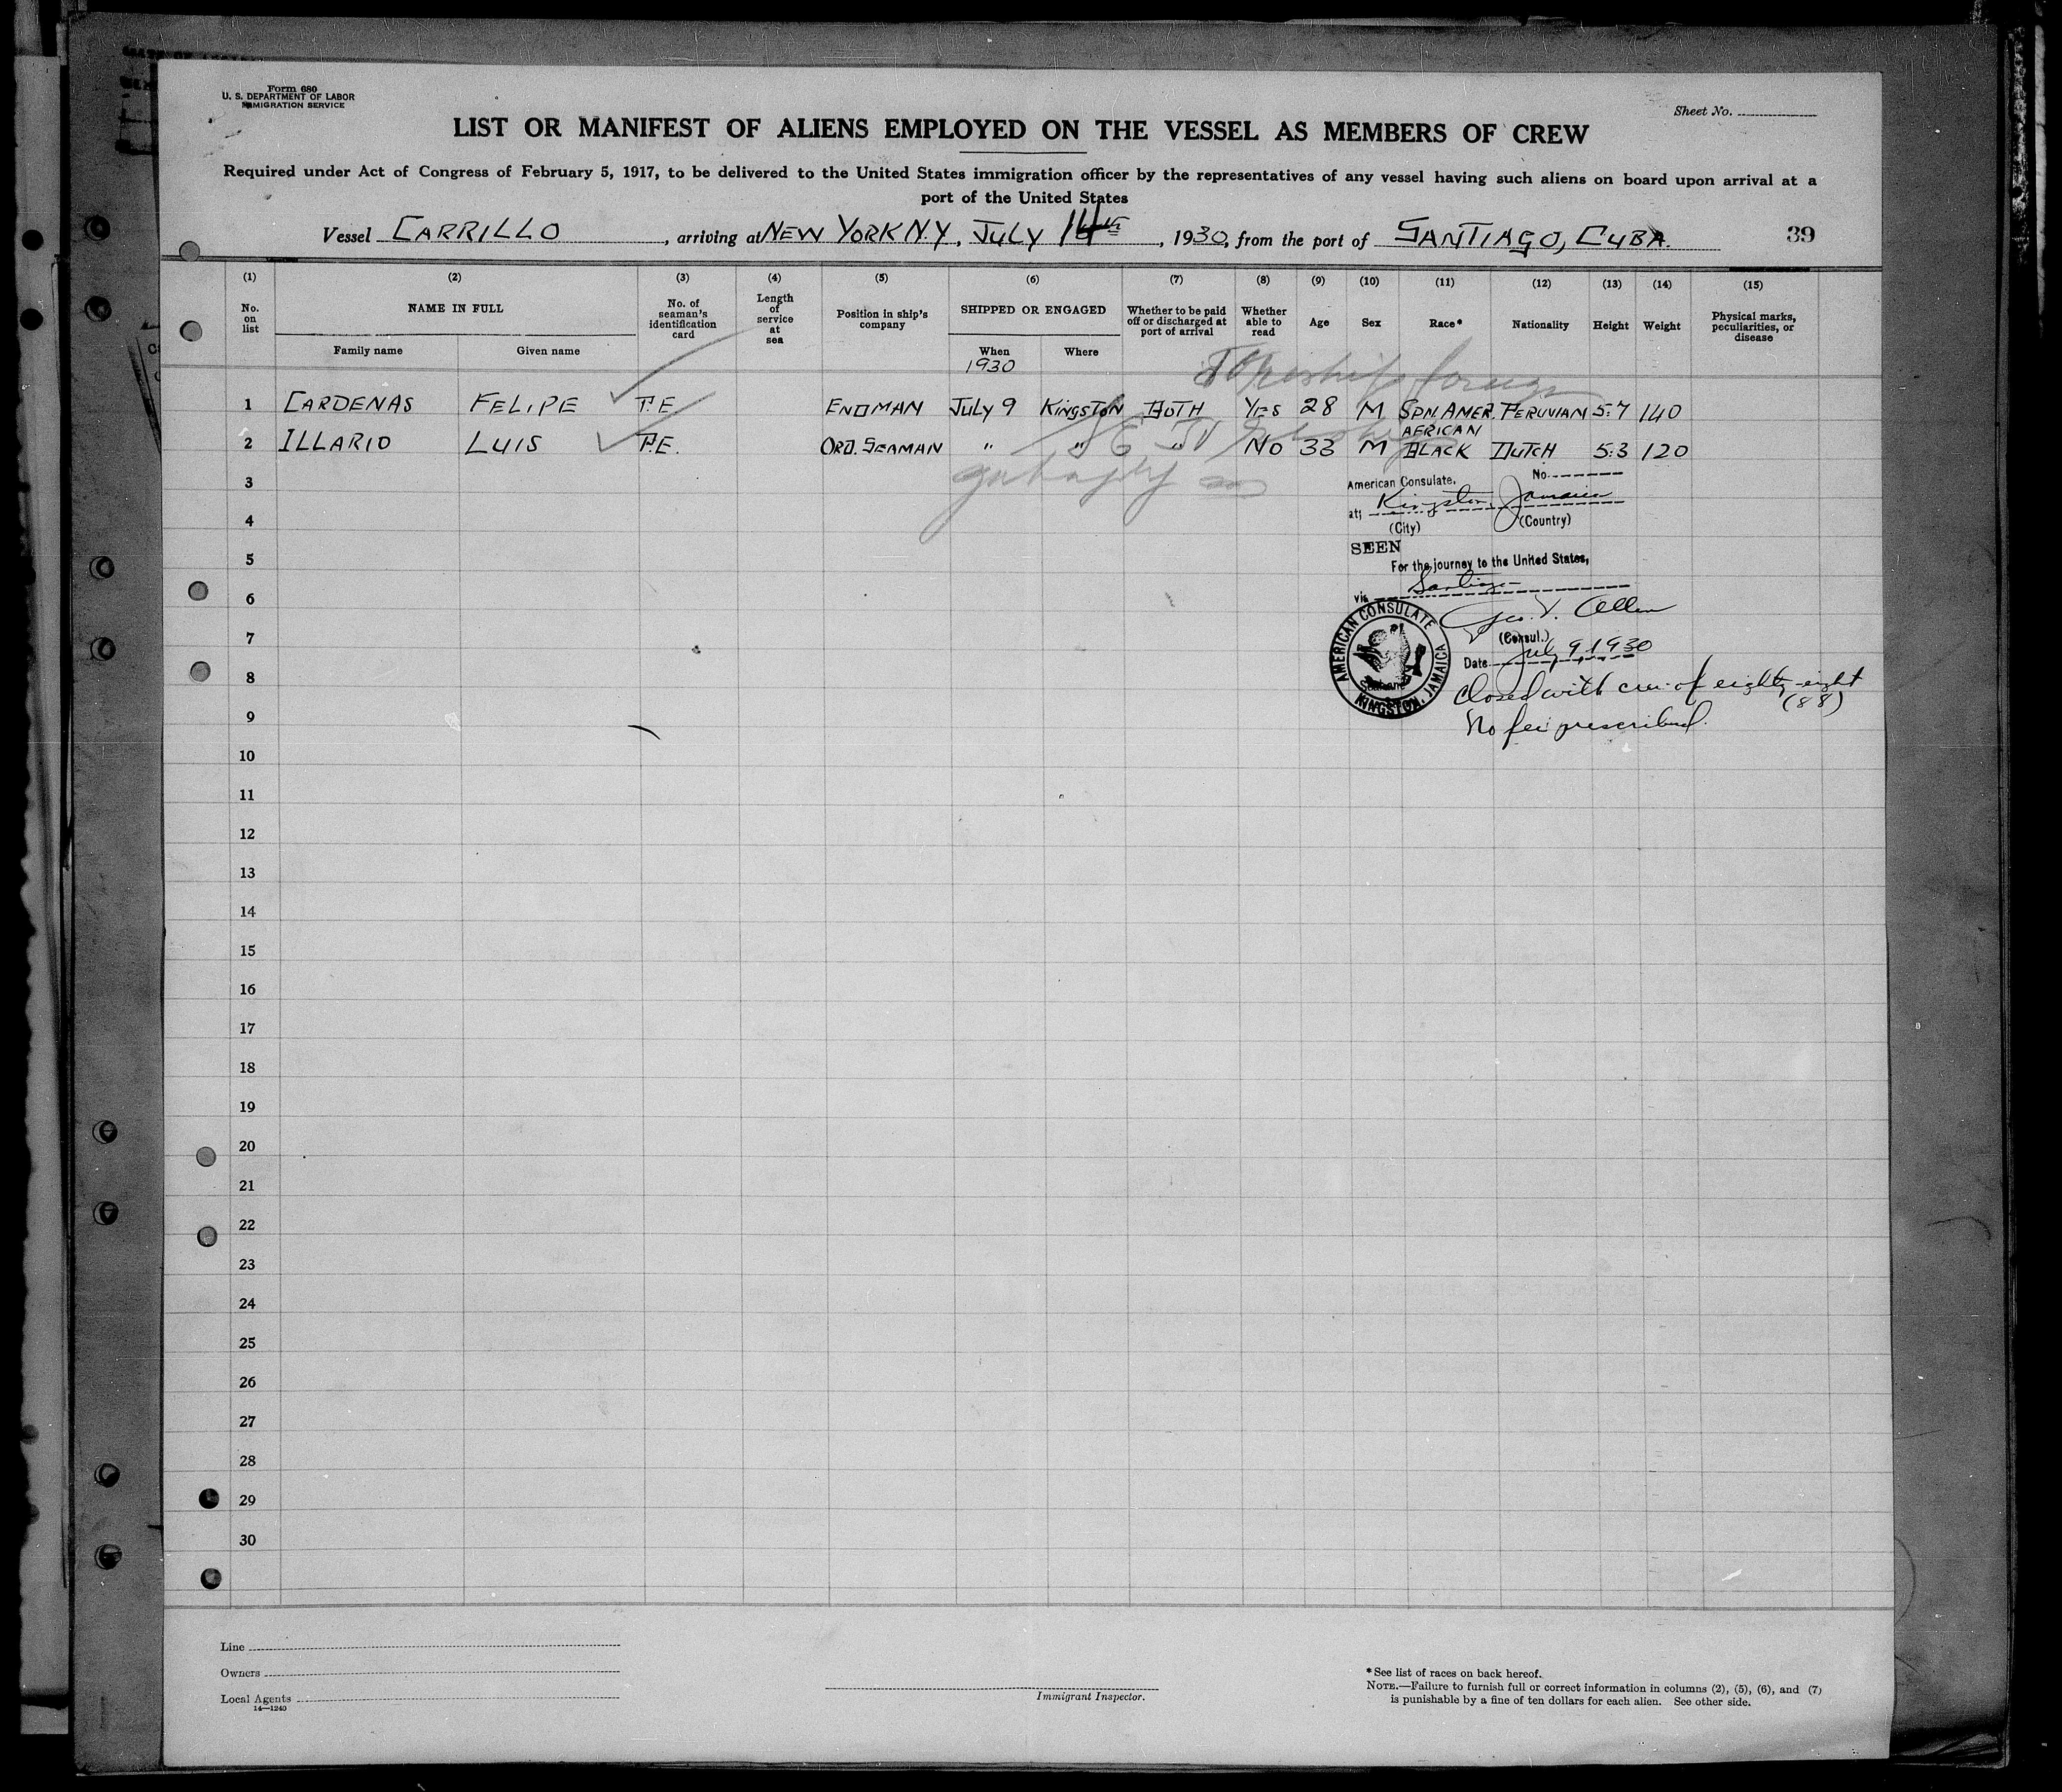 Form 680
U. S. DEPARTMENT OF LABOR
IMMIGRATION SERVICE
Sheet No.
LIST OR MANIFEST OF ALIENS EMPLOYED ON THE VESSEL AS MEMBERS OF CREW
Required under Act of Congress of February 5, 1917, to be delivered to the United States immigration officer by the representatives of any vessel having such aliens on board upon arrival at a
port of the United States
Vessel CARRILLO, arriving at NEW YORK N.Y, JULY 14th, 1930, from the port of SANTIAGO, CUBA. 39
(1) (2) (3) (4) (5) (6) (7) (8) (9) (10) (11) (12) (13) (14) (15)
No. on list NAME IN FULL Family name Given name No. of seaman's identification card Length of service at sea Position in ship's company SHIPPED OR ENGAGED When Where Whether to be paid off or discharged at port of arrival Whether able to read Age Sex Race* Nationality Height Weight Physical marks, peculiarities, or disease
1930
1 CARDENAS FELIPE P.E. ENDMAN JULY 9 KINGSTON BOTH YES 28 M SPN. AMER. PERUVIAN 5:7 140
AFRICAN
2 ILLARIO LUIS P.E. ORD. SEAMAN " " " NO 33 M BLACK DUTCH 5:3 120
3
American Consulate, No.
at; Kingston, Jamaica
(City) (Country)
4
SEEN
5
For the journey to the United States,
via Santiago
6
Geo. V. Allen
7
(Consul.)
Date July 9, 1930
AMERICAN CONSULATE
KINGSTON, JAMAICA
8
Closed with crew of eighty-eight
(88)
9
No fee prescribed.
10
11
12
13
14
15
16
17
18
19
20
21
22
23
24
25
26
27
28
29
30
Line
Owners
Local Agents
14—1240
Immigrant Inspector.
* See list of races on back hereof.
NOTE.—Failure to furnish full or correct information in columns (2), (5), (6), and (7)
is punishable by a fine of ten dollars for each alien. See other side.